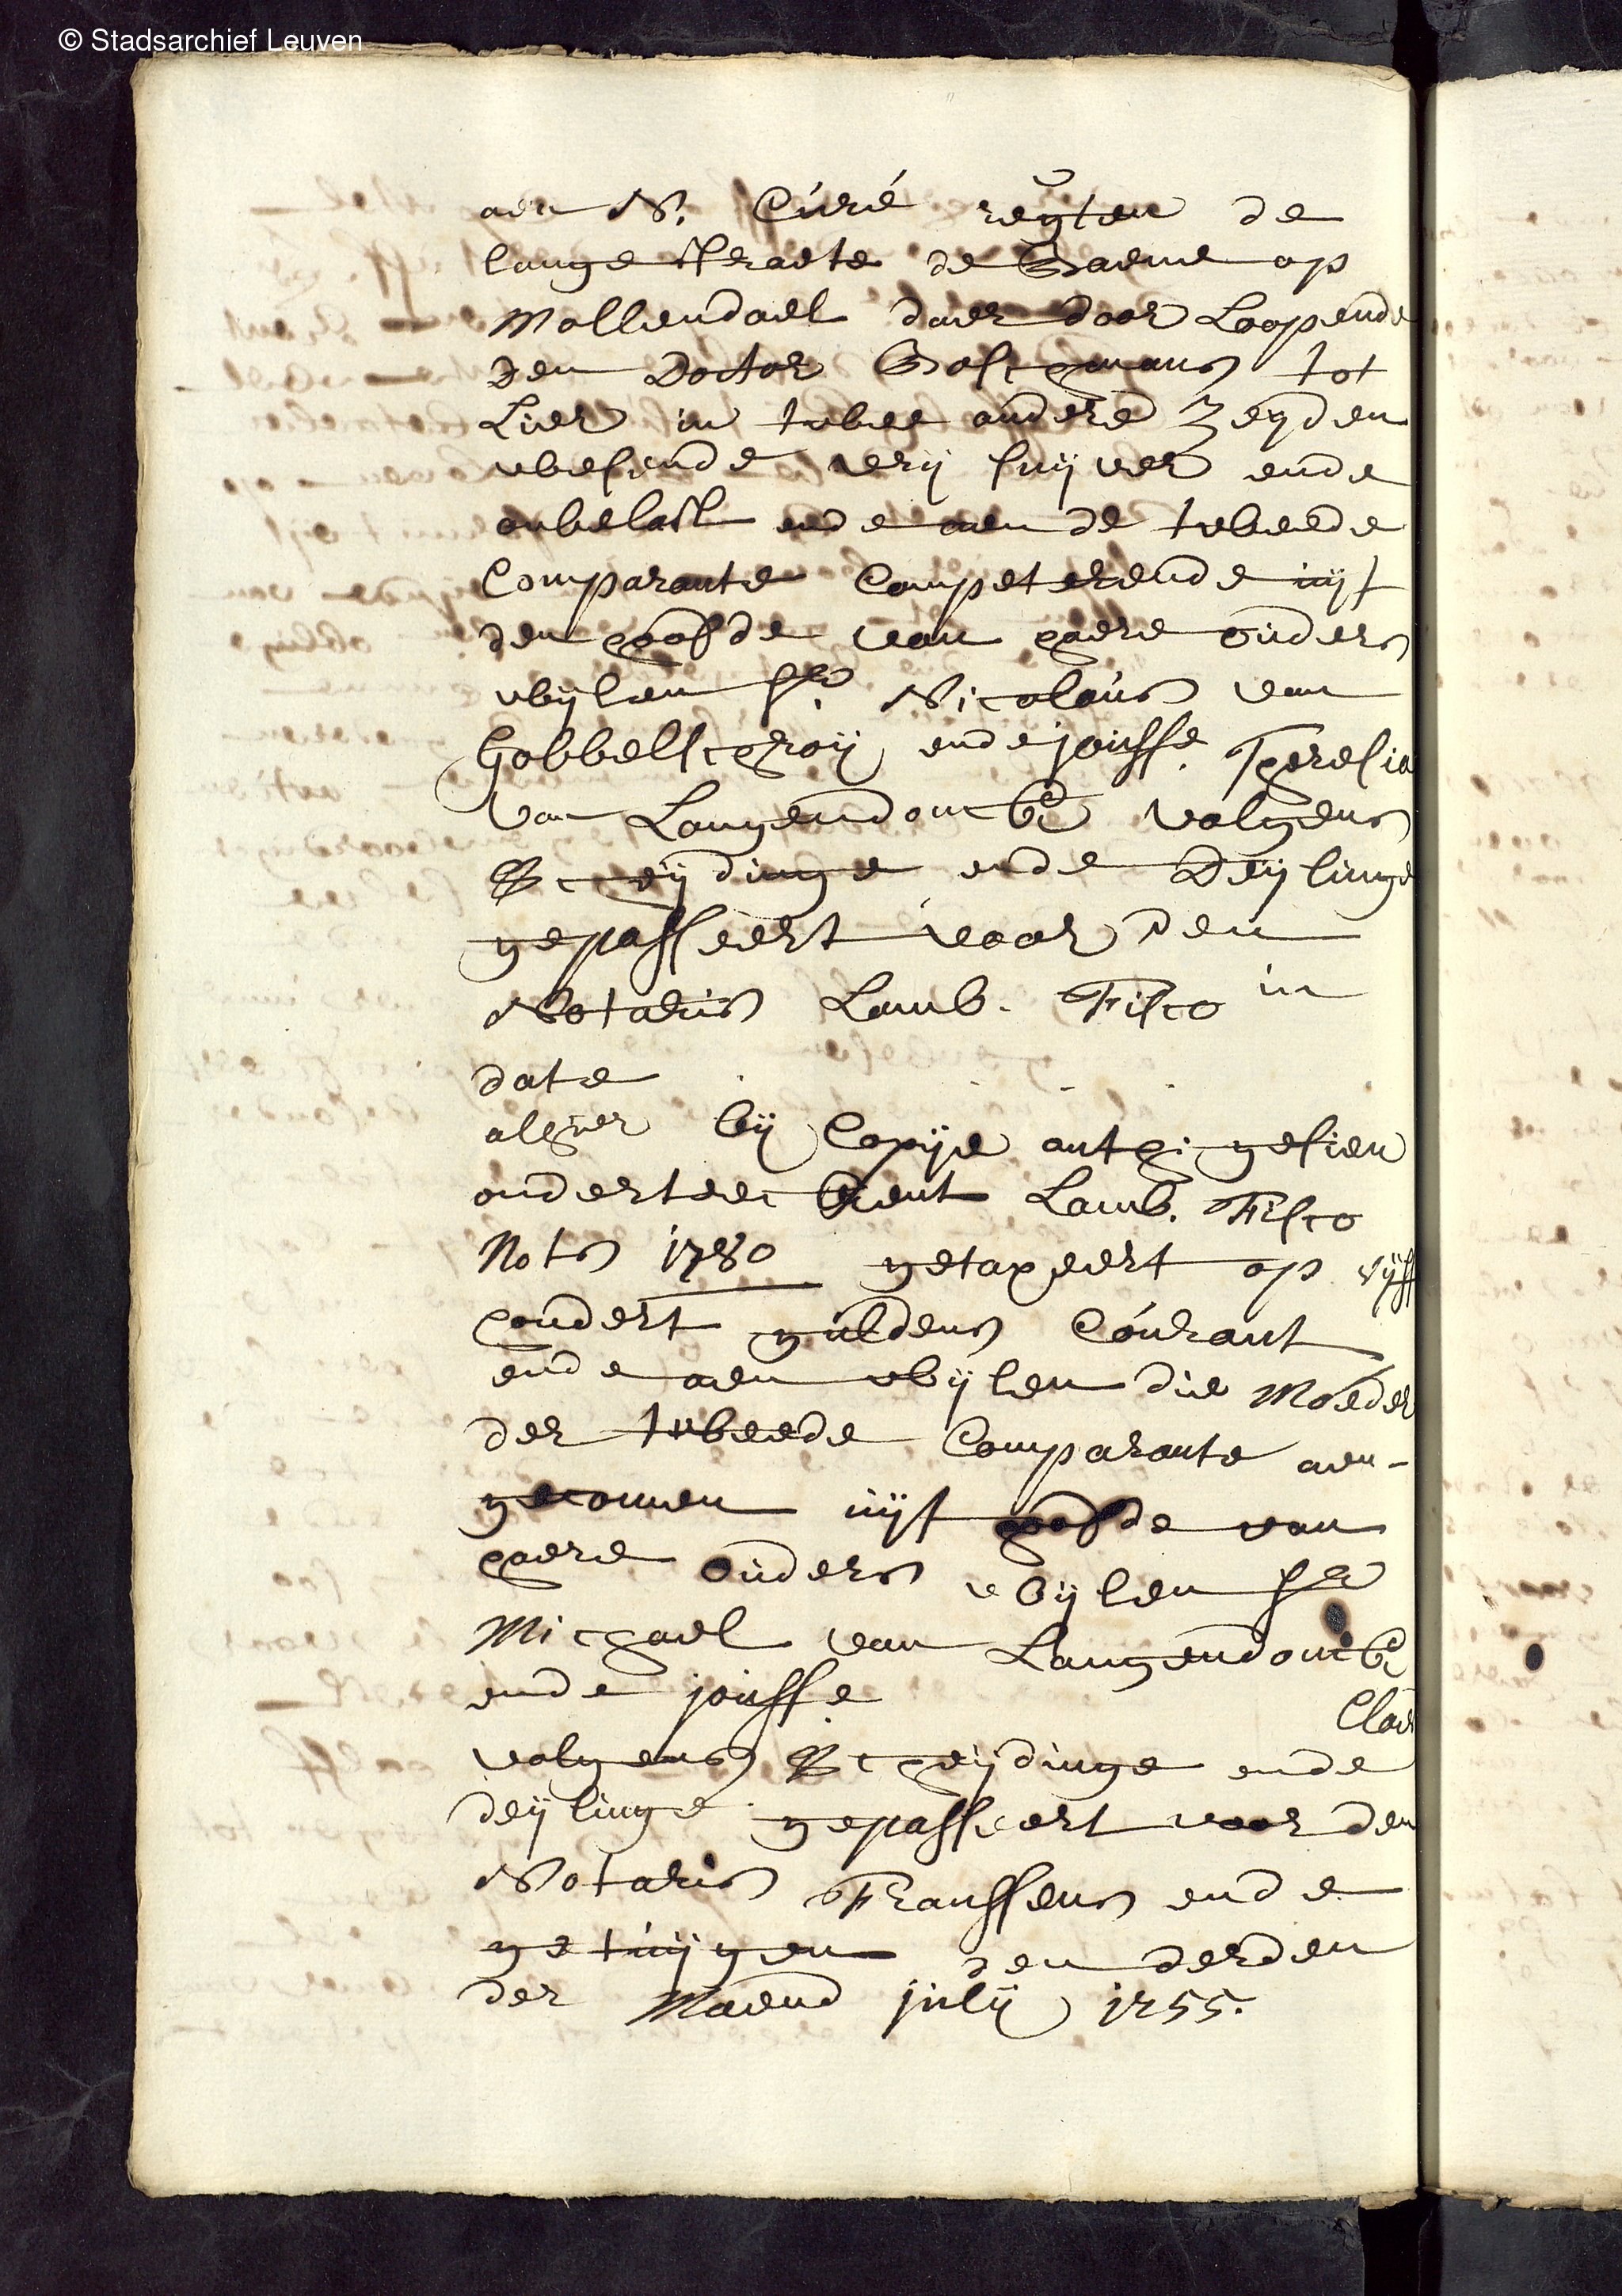 © Stadsarchief Leuven
aen N. Curé regten de
lange straete de Baene op
Mollendael daer door Loopende
den Doctor Bosschmans tot
Lier in twee andere Zeyden
wesende vrij suijver ende
onbelast ende aen de tweede
Comparante Competerende uijt
den hoofde van haere ouders
wijlen sr. Nicolaus van
Gobbelschroij ende jouffe. Theresia
van Langendonck volgens
Scheijdinge ende Deijlinge
gepasseert voor den
Notaris Lamb. Fisco in
date
alhier bij Copije auth: gesien
onderteeckent Lamb. Fisco
Nots 1780 getaxeert op vijff
hondert guldens Courant
ende aen wijlen die Moeder
der tweede Comparante aen-
gecomen uijt hoofde van
haere ouders wijlen sr
Michael van Langendonck
ende jouffe
Clae
volgens Scheijdinge ende
deijlinge gepasseert voor den
Notaris Franssens ende
getuijgen den derden
der Maend julij 1755.